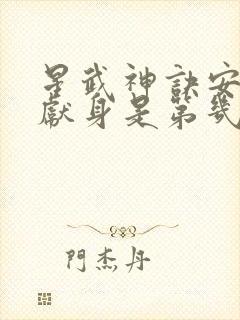 星武神訣安
獻身是第幾
門杰丹